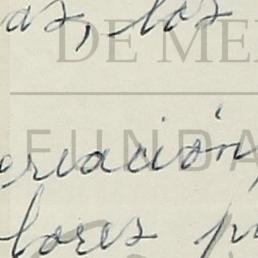 as, los
DE ME
FUNDA
creación,
lores p